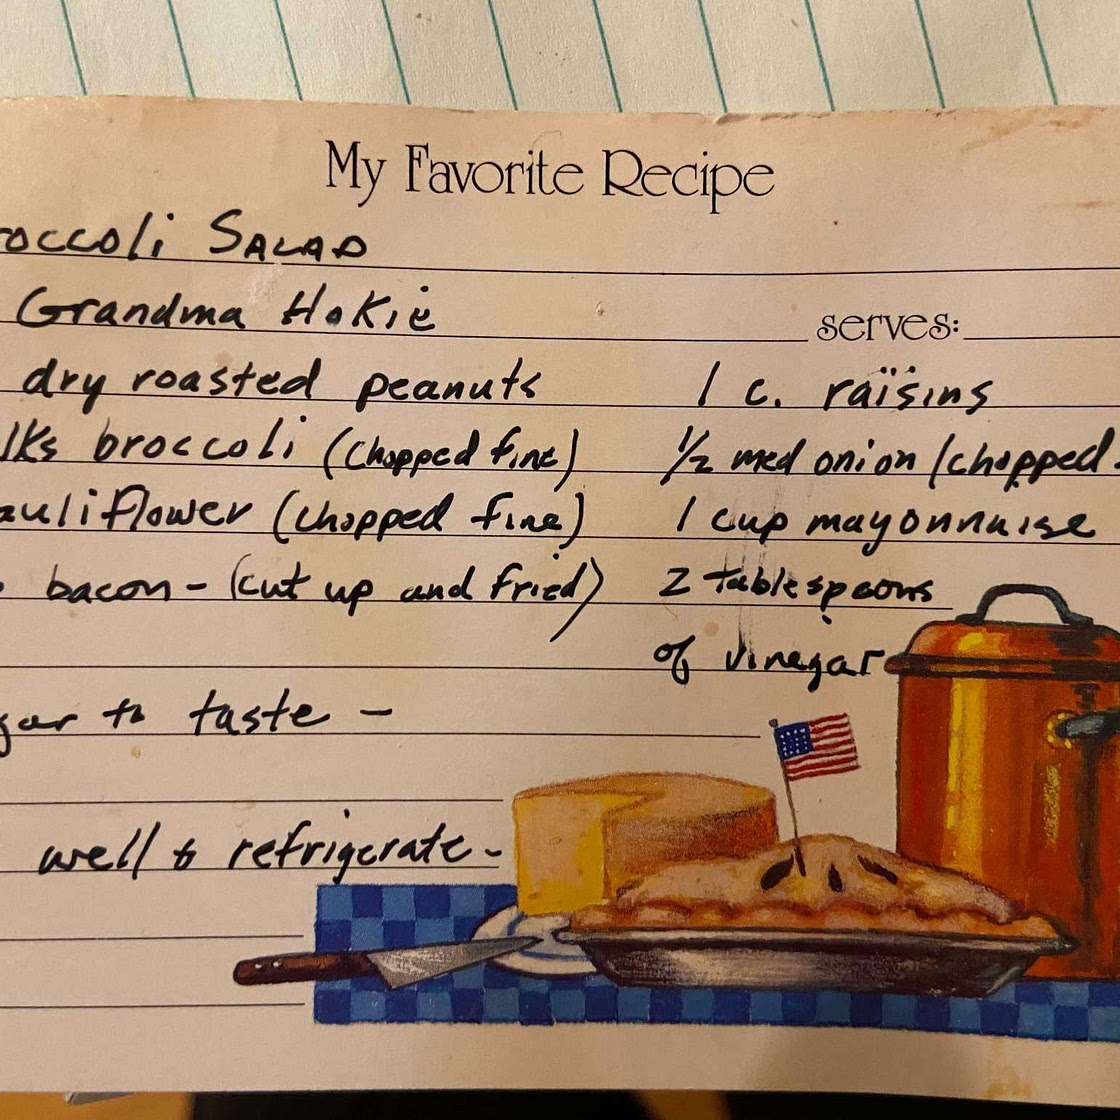 My Favorite Recipe
roccoli Salad
Grandma Hokie
serves:
dry roasted peanuts
lks broccoli (chopped fine)
auliflower (chopped fine)
bacon - (cut up and fried)
gar to taste -
well & refrigerate -
1 c. raisins
1/2 med onion (chopped
1 cup mayonnaise
2 tablespoons
of vinegar